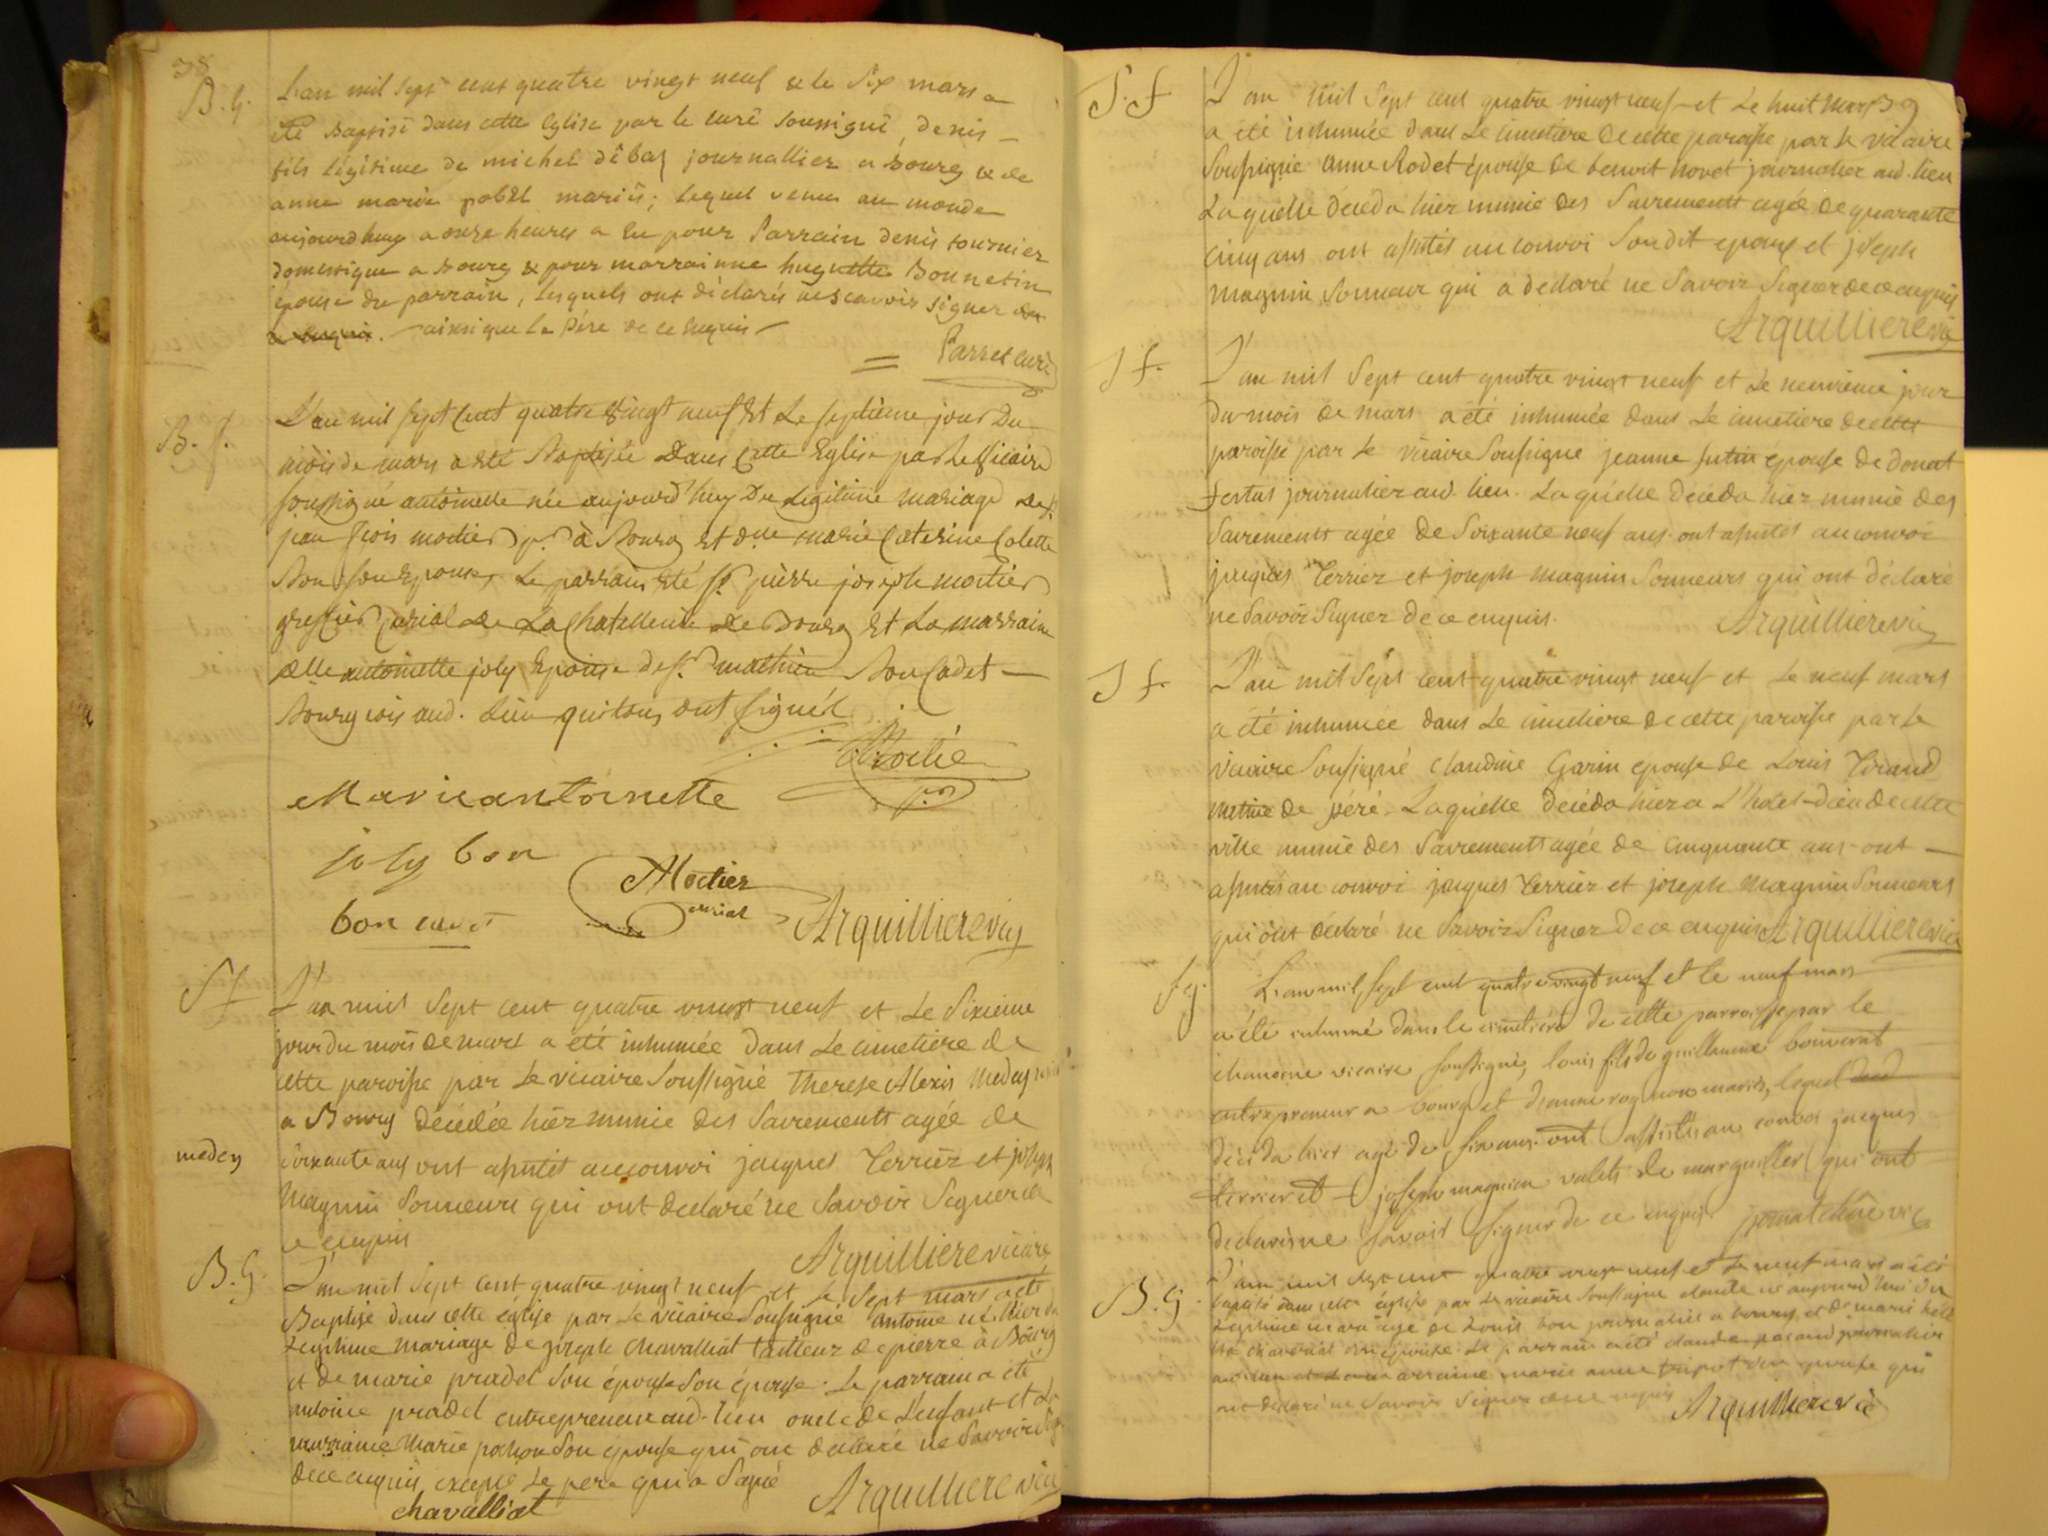 38
B. G.
L'an mil sept cent quatre vingt neuf & le six mars a
été Baptisé dans cette Eglise par le curé soussigné, denis
fils légitime de michel débaz journallier a bourg & de
anne marie pobel mariés; lequel venu au monde
aujourdhuy a onze heures a Eu pour Parrain denis tournier
domestique a bourg & pour marrainne huguette Bonnetin
épouse du parrain, lesquels ont déclarés ne scavoir signer
ainsi que le Père de ce Enquis
Parret curé
B. f.
L'an mil sept Cent quatre vingt neuf Et Le septieme jour Du
mois de mars a Eté Baptisée Dans Cette Eglise par Le Vicaire
soussigné antoinette née aujourd'huy Du Legitime mariage De sr.
jean fçois moctier pr. à Bourg Et dlle marie Caterine Colette
Bon son Epouse, Le parrain Eté sr. pierre joseph moctier
greffier Curial De La Chatellenie De Bourg Et La marraine
delle antoinette joly Epouse de sr. mathieu Bon Cadet
Bourgeois aud. Lieu qui tous ont signés
Moctié
Marie antoinette
joly bon
Moctier
curial
bon cadet
Arquilliere vic
S f
L'an mil sept cent quatre vingt neuf et Le Sixieme
jour du mois de mars a été inhumée dans Le cimetiere de
cette paroisse par Le vicaire Soussigné Therese Alexis medey
a Bourg décédée hier munie des Sacrements agée de
medey
Soixante ans ont assistés au convoi jacques Terrier et joseph
Magnin Sonneurs qui ont declaré ne Savoir Signer de
ce enquis
Arquilliere vicaire
B. G.
L'an mil Sept cent quatre vingt neuf et Le Sept mars a été
Baptisé dans cette eglise par Le vicaire Soussigné antoine né hier du
Legitime mariage de joseph chavalliat tailleur de pierre à Bourg
et de marie pradel Son épouse Son épouse. Le parrain a été
antoine pradel entrepreneur aud. lieu oncle de L'enfant et La
marraine Marie pochon Son épouse qui ont declaré ne Savoir Sig
de ce enquis excepté Le pere qui a Signé
chavalliat
Arquilliere vic
S. f
L'an mil Sept cent quatre vingt neuf et Le huit Mars
a été inhumée dans Le cimetiere de cette paroisse par Le vicaire
Soussigné anne Rodet épouse de benoit novet journalier aud. lieu
Laquelle déceda hier munie des Sacrements agée de quarante
cinq ans ont assistés au convoi Son dit epoux et joseph
magnin Sonneur qui a declaré ne Savoir Signer de ce enquis
Arquilliere vic
S f.
L'an mil Sept cent quatre vingt neuf et Le neuvieme jour
du mois de mars a été inhumée dans Le cimetiere de cette
paroisse par Le vicaire Soussigné jeanne epouse de donat
festas journalier aud. lieu. Laquelle déceda hier munie des
Sacrements agée de Soixante neuf ans. ont assistés au convoi
jacques Terrier et joseph Magnin Sonneurs qui ont déclaré
ne Savoir Signer de ce enquis.
Arquilliere vic
S f.
L'an mil Sept cent quatre vingt neuf et Le neuf mars
a été inhumée dans Le cimetiere de cette paroisse par Le
vicaire Soussigné claudine Garin epouse de Louis Tirand
native de péré. Laquelle déceda hier a L'hotel-dieu de cette
ville munie des Sacrements agée de cinquante ans ont
assistés au convoi jacques Terrier et joseph Magnin Sonneurs
qui ont declaré ne Savoir Signer de ce enquis Arquilliere vic
S g.
L'an mil Sept cent quatre vingt neuf et le neuf mars
a été inhumé dans le cimetiere de cette parroisse par le
chanoine vicaire soussigné, louis fils de guillaume bouverat
entrepreneur a bourg et d'anne mariés, lequel
décéda hier agé de six ans. ont assistés au convoi jacques
terrier et joseph magnien valets de marguillier qui ont
declarés ne savoir signer de ce enquis.
B. G.
L'an mil sept cent quatre vingt neuf et Le neuf mars a été
baptisé dans cette église par Le vicaire soussigné claude né aujourd'hui du
Legitime mariage de Louis bon journalier a bourg et de marie
chavériat son épouse. Le parrain a été claude pacaud journalier
aud. lieu et La marraine marie anne son épouse qui
ont declaré ne Savoir Signer de ce enquis
Arquilliere vic